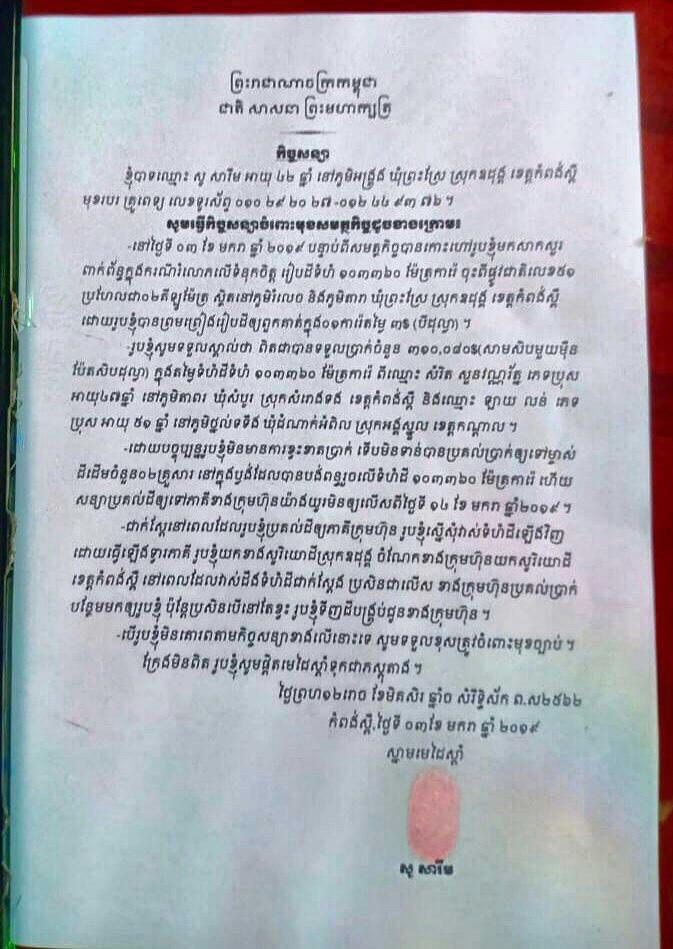 ព្រះរាជាណាចក្រកម្ពុជា
ជាតិ សាសនា ព្រះមហាក្សត្រ
កិច្ចសន្យា
ខ្ញុំបាទឈ្មោះ សូ សារ៉ើម អាយុ ៤២ ឆ្នាំ នៅភូមិអង្រ្គង ឃុំព្រះស្រែ ស្រុកឧដុង្គ ខេត្តកំពង់ស្ពឺ
មុខរបរ គ្រូពេទ្យ លេខទូរស័ព្ទ ០១០ ២៩ ២០ ២៧ -០១២ ៤៤ ៩៣ ៧៦ ។
សូមធ្វើកិច្ចសន្យាចំពោះមុខសមត្ថកិច្ចដូចខាងក្រោម៖
-នៅថ្ងៃទី ០៣ ខែ មករា ឆ្នាំ ២០១៩ បន្ទាប់ពីសមត្ថកិច្ចបានកោះហៅរូបខ្ញុំមកសាកសួរ
ពាក់ព័ន្ធក្នុងករណីរំលោភលើទំនុកចិត្ត រៀបដីទំហំ ១០៣៣៦០ ម៉ែត្រការ៉េ ចុះពីផ្លូវជាតិលេខ៥១
ប្រហែលជា០២គីឡូម៉ែត្រ ស្ថិតនៅភូមិរំលេច និងភូមិតារា ឃុំព្រះស្រែ ស្រុកឧដុង្គ ខេត្តកំពង់ស្ពឺ
ដោយរូបខ្ញុំបានព្រមព្រៀងរៀបដីឲ្យពួកគាត់ក្នុង០១ការ៉េតម្លៃ ៣$ (បីដុល្លា) ។
-រូបខ្ញុំសូមទទួលស្គាល់ថា ពិតជាបានទទួលប្រាក់ចំនួន ៣១០,០៨០$(សាមសិបមួយម៉ឺន
ប៉ែតសិបដុល្លា) ក្នុងតម្លៃទំហំដីទំហំ ១០៣៣៦០ ម៉ែត្រការ៉េ ពីឈ្មោះ សំរិត សួនវណ្ណរ័ត្ន ភេទប្រុស
អាយុ៤៧ឆ្នាំ នៅភូមិតាពរ ឃុំសំបូរ ស្រុកសំរោងទង ខេត្តកំពង់ស្ពឺ និងឈ្មោះ ឡាយ លន់ ភេទ
ប្រុស អាយុ ៥១ ឆ្នាំ នៅភូមិថ្នល់ទទឹង ឃុំដំណាក់អំពិល ស្រុកអង្គស្នួល ខេត្តកណ្តាល ។
-ដោយបច្ចុប្បន្នរូបខ្ញុំមិនមានការខ្វះខាតប្រាក់ ទើបមិនទាន់បានប្រគល់ប្រាក់ឲ្យទៅម្ចាស់
ដីដើមចំនួន០២គ្រួសារ នៅក្នុងប្លង់ដែលបានបង់ពន្ធរួចលើទំហំដី ១០៣៣៦០ ម៉ែត្រការ៉េ ហើយ
សន្យាប្រគល់ដីឲ្យទៅភាគីខាងក្រុមហ៊ុនយ៉ាងយូរមិនឲ្យលើសពីថ្ងៃទី ១៤ ខែ មករា ឆ្នាំ២០១៩ ។
-ជាក់ស្តែនៅពេលដែលរូបខ្ញុំប្រគល់ដីឲ្យភាគីក្រុមហ៊ុន រូបខ្ញុំស្នើសុំវាស់ទំហំដីឡើងវិញ
ដោយធ្វើឡើងទ្វារភាគី រូបខ្ញុំយកខាងសូរិយោដីស្រុកឧដុង្គ ចំណែកខាងក្រុមហ៊ុនយកសូរិយោដី
ខេត្តកំពង់ស្ពឺ នៅពេលដែលវាស់ដឹងទំហំដីជាក់ស្តែង ប្រសិនជាលើស ខាងក្រុមហ៊ុនប្រគល់ប្រាក់
បន្ថែមមកឲ្យរូបខ្ញុំ ប៉ុន្តែប្រសិនបើនៅតែខ្វះ រូបខ្ញុំទិញដីបង្គ្រប់ជូនខាងក្រុមហ៊ុន ។
-បើរូបខ្ញុំមិនគោរពតាមកិច្ចសន្យាខាងលើនោះទេ សូមទទួលខុសត្រូវចំពោះមុខច្បាប់ ។
ក្រែងមិនពិត រូបខ្ញុំសូមផ្តិតមេដៃស្តាំទុកជាភស្តុតាង ។
ថ្ងៃព្រហ១២រោច ខែមិគសិរ ឆ្នាំច សំរឹទ្ធិស័ក ព.ស២៥៦២
កំពង់ស្ពឺ,ថ្ងៃទី ០៣ខែ មករា ឆ្នាំ ២០១៩
ស្នាមមេដៃស្តាំ
សូ សារ៉ើម